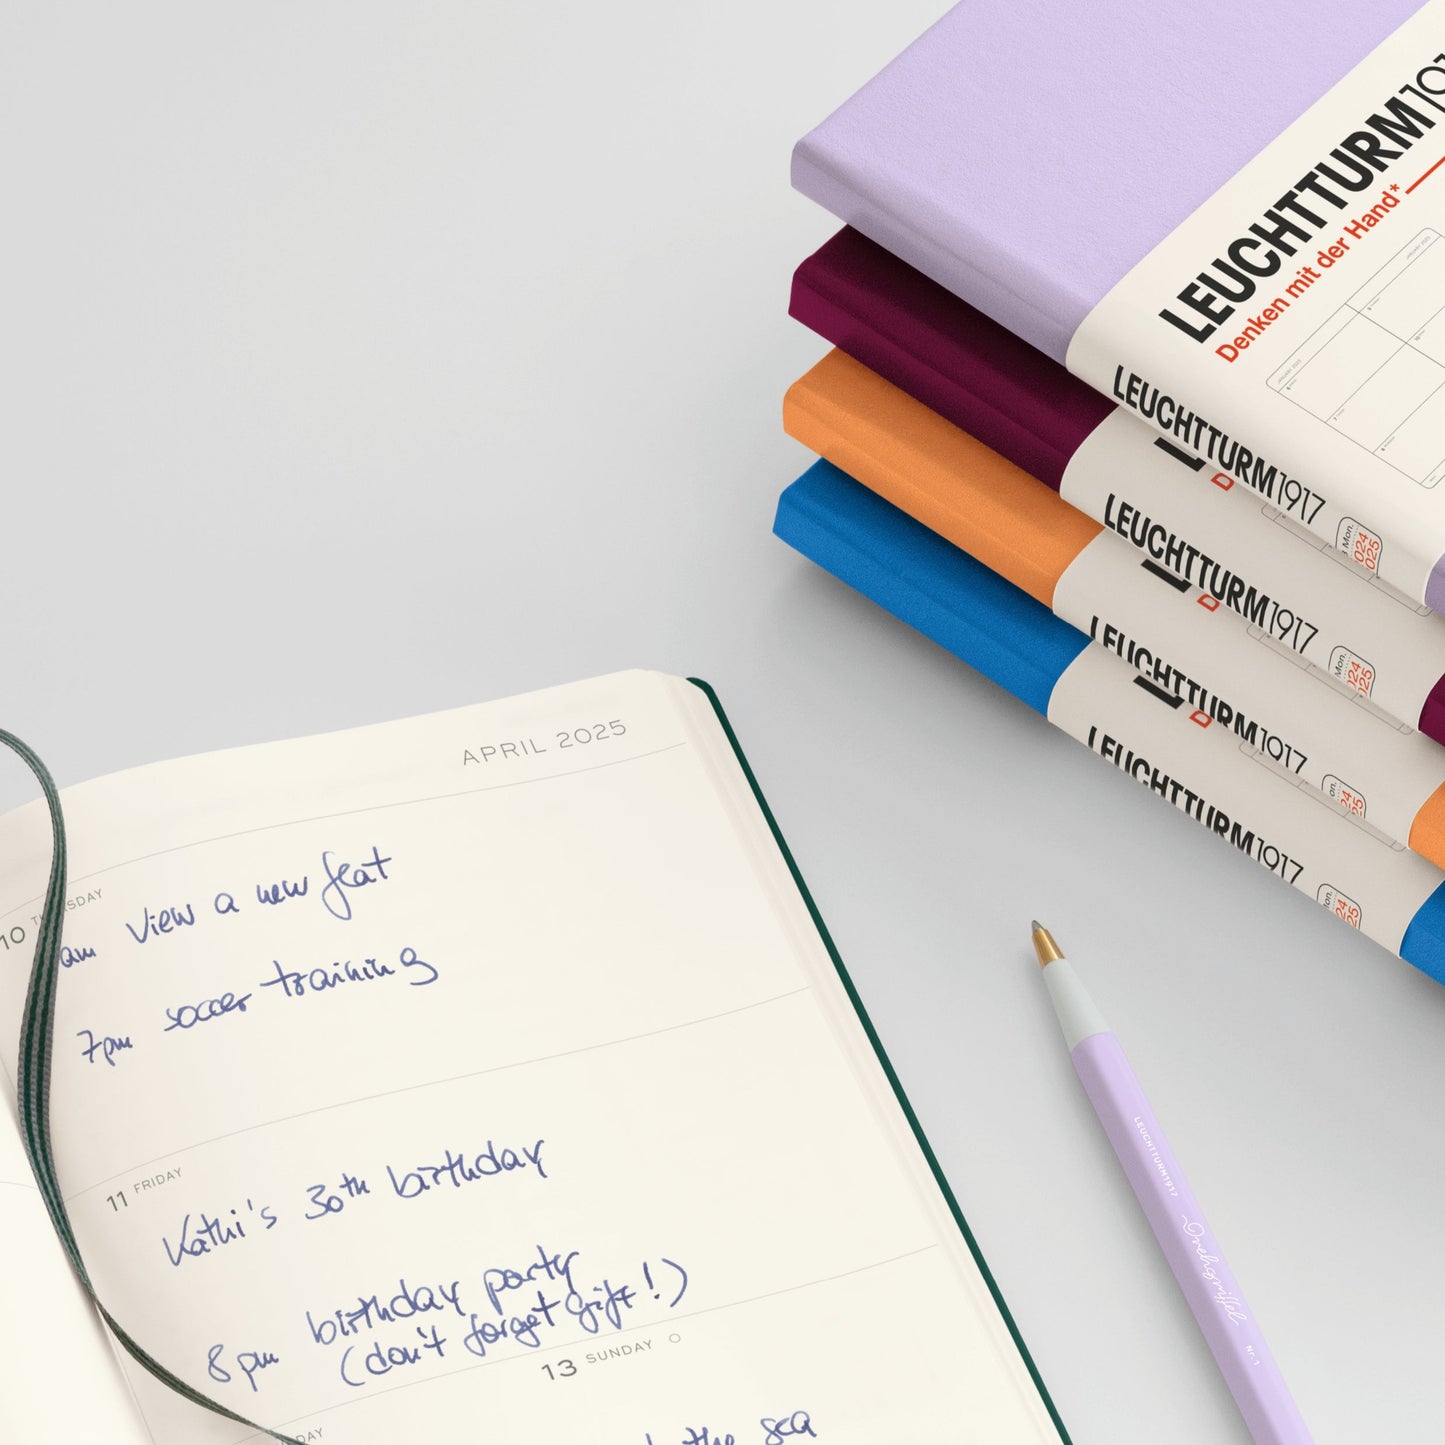 LEUCHTTURM191
Denken mit der Hand*
LEUCHTTURM1917
024
025
LEUCHTTURM1917
Mon.
024
025
LEUCHTTURM1917
on.
24
25
LEUCHTTURM1917
on.
24
25
APRIL 2025
10 THURSDAY
am view a new flat
7pm soccer training
11 FRIDAY
Kathi's 30th birthday
8pm birthday party
(don't forget gift!)
13 SUNDAY
DAY
the sea
LEUCHTTURM1917
Drehgriffel
Nr. 1